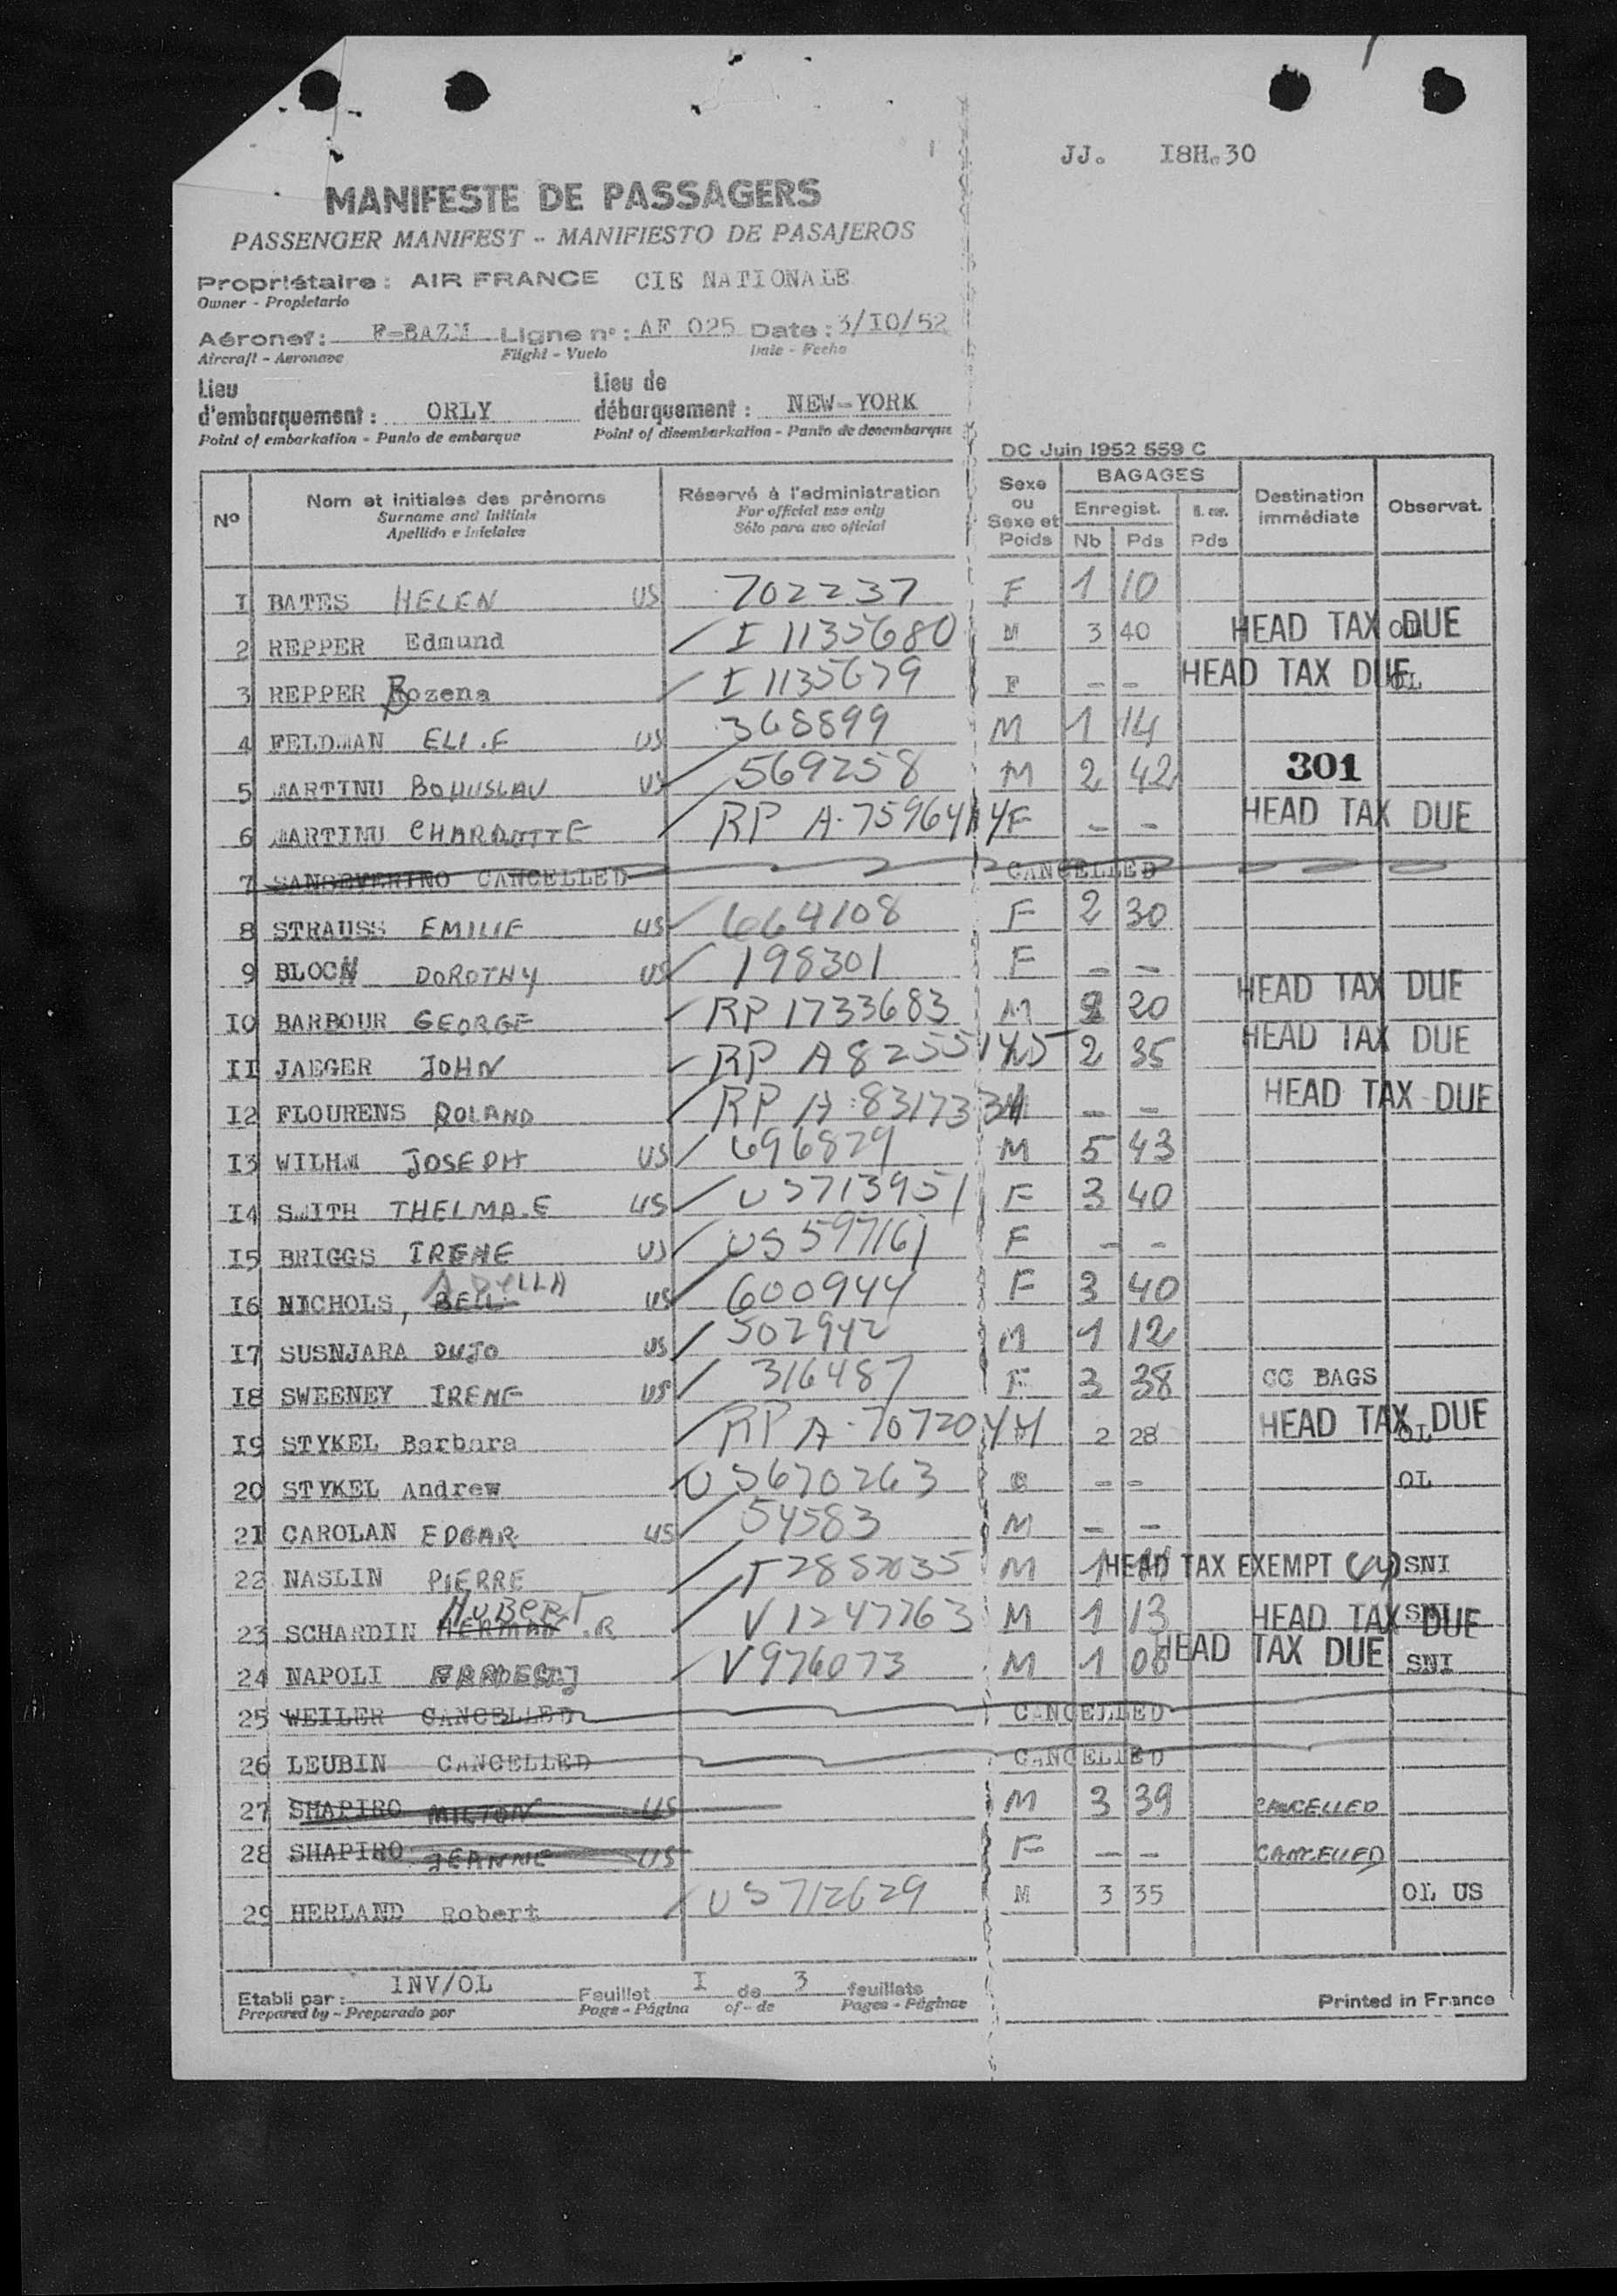 JJ. I8H.30
MANIFESTE DE PASSAGERS
PASSENGER MANIFEST - MANIFIESTO DE PASAJEROS
Propriétaire : AIR FRANCE CIE NATIONALE
Owner - Propietario
Aéronef : F-BAZM Ligne n° : AF 025 Date : 3/IO/52
Aircraft - Aeronave Flight - Vuelo Date - Fecha
Lieu d'embarquement : ORLY Lieu de débarquement : NEW-YORK
Point of embarkation - Punto de embarque Point of disembarkation - Punto de desembarque
DC Juin 1952 559 C
Nº Nom et initiales des prénoms Réservé à l'administration Sexe ou Sexe et Poids BAGAGES Destination immédiate Observat.
Surname and initials For official use only Enregist.
Apellido e iniciales Sólo para uso oficial Nb Pds Pds
I BATES HELEN US 702237 F 1 10
2 REPPER Edmund I 1135680 M 3 40 HEAD TAX DUE OL
3 REPPER Bozena I 1135679 F - - HEAD TAX DUE OL
4 FELDMAN ELI.F US 368899 M 1 14
5 MARTINU BOHUSLAV US 569258 M 2 42 301
6 MARTINU CHARLOTTE RP A-7596414 F - - HEAD TAX DUE
7 SANSEVERINO CANCELLED CANCELLED
8 STRAUSS EMILIE US 664108 F 2 30
9 BLOCH DOROTHY US 198301 F - -
IO BARBOUR GEORGE RP 1733683 M 20 HEAD TAX DUE
II JAEGER JOHN RP 2 35 HEAD TAX DUE
I2 FLOURENS ROLAND RP - - HEAD TAX DUE
I3 WILHM JOSEPH US 696829 M 5 43
I4 SMITH THELMA.E US US713951 F 3 40
I5 BRIGGS IRENE US US 597161 F - -
I6 NICHOLS, BELL US 600944 F 3 40
I7 SUSNJARA DUJO US 502942 M 1 12
I8 SWEENEY IRENE US 316487 F 3 38 CC BAGS
I9 STYKEL Barbara RP 2 28 HEAD TAX DUE OL
20 STYKEL Andrew US670263 - - OL
2I CAROLAN EDGAR US 54583 M - -
22 NASLIN PIERRE M 1 HEAD TAX EXEMPT SNI
HUBERT
23 SCHARDIN HERMAN .R V 1247763 M 1 13 HEAD TAX DUE SNI
24 NAPOLI V976073 M 1 08 HEAD TAX DUE SNI
25 WEILER CANCELLED CANCELLED
26 LEUBIN CANCELLED CANCELLED
27 SHAPIRO MILTON US M 3 39 CANCELLED
28 SHAPIRO JEANNE US F - - CANCELLED
29 HERLAND Robert US 712629 M 3 35 OL US
Etabli par : INV/OL Feuillet I de 3 feuillets
Prepared by - Preparado por Page - Página of - de Pages - Páginas
Printed in France